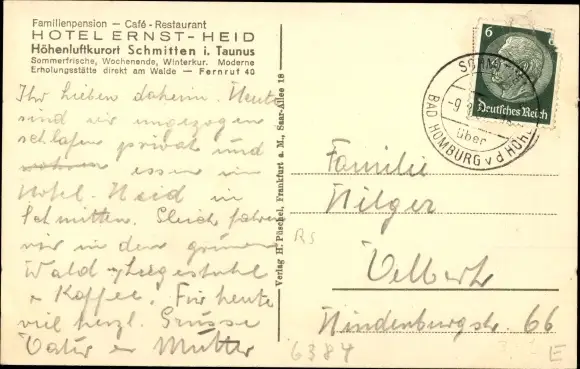 Familienpension — Café - Restaurant
HOTEL ERNST - HEID
Höhenluftkurort Schmitten i. Taunus
Sommerfrische, Wochenende, Winterkur. Moderne
Erholungsstätte direkt am Walde — Fernruf 40
Ihr lieben daheim. Heute
sind wir umgezogen
schlafen privat und
wohnen essen im
Hotel. Heid in
Schmitten. Gleich fahren
wir in den grünen
Wald - Liegestuhl
u Kaffee. Für heute
viel herzl. Grüsse
Vater u Mutter
Verlag H. Püschel, Frankfurt a. M., Saar-Allee 18
6
Deutsches Reich
SCHMI
-9.
über
BAD HOMBURG v d HÖH
Familie
Hilger
Velbert
Hindenburgstr. 66
RS
6384
E